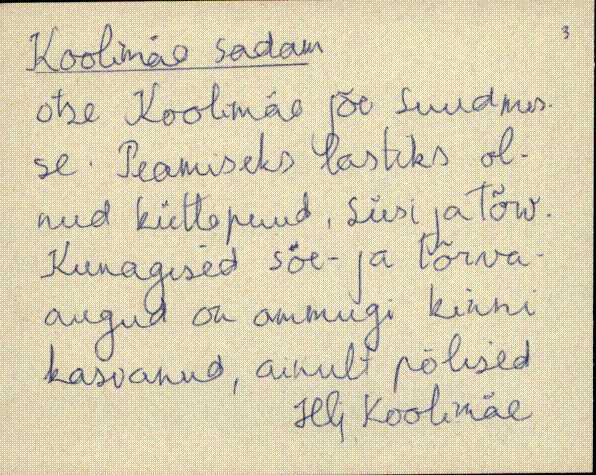 3
Koolimäe sadam
otse Koolimäe jõe suudmes-
se. Peamiseks lastiks ol-
nud küttepuud, süsi ja tõrv.
Kunagised söe- ja tõrva-
augud on ammugi kinni
kasvanud, ainult põlised
Hlj Koolimäe